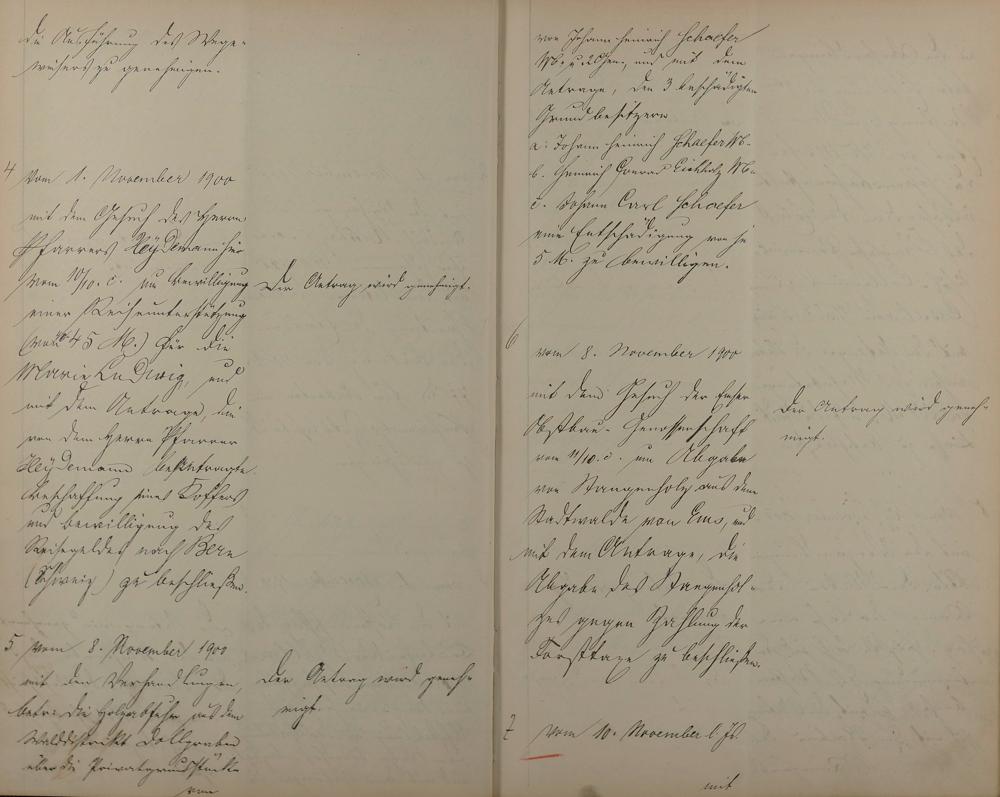 die Ausführung des Wege-
weisers zu genehmigen.
4
Vom 1. November 1900
mit dem Gesuch des Herrn
Pfarrers Heydemann hier
vom 10/10. c. um Bewilligung
einer Reiseunterstützung
45 M.) für die
Marie Ludwig, und
mit dem Antrage, die
von dem Herrn Pfarrer
Heydemann beantragte
Beschaffung eines Koffers
und Bewilligung des
Reisegeldes nach Bern
(Schweiz) zu beschließen.
Der Antrag wird genehmigt.
5. Vom 8. November 1900
mit den Verhandlungen,
betr. die Holzabfuhr aus dem
Walddistrikt Dollgraben
über die Privatgrundstücke
von
Der Antrag wird geneh-
migt.
von Johann Heinrich Schaefer
und mit dem
Antrage, den 3 beschädigten
Grundbesitzern
a. Johann Heinrich Schaefer
b. Heinrich Conrad Eichholz
c. Johann Carl Schaefer
eine Entschädigung von je
5 M. zu bewilligen.
6
vom 8. November 1900
mit dem Gesuch der Emser
Obstbau-Genossenschaft
vom 11/10. c. um Abgabe
von Stangenholz aus dem
Stadtwalde von Ems, und
mit dem Antrage, die
Abgabe des Stangenhol-
zes gegen Zahlung der
Forsttaxe zu beschließen.
Der Antrag wird geneh-
migt.
7
vom 10. November l. Js.
mit